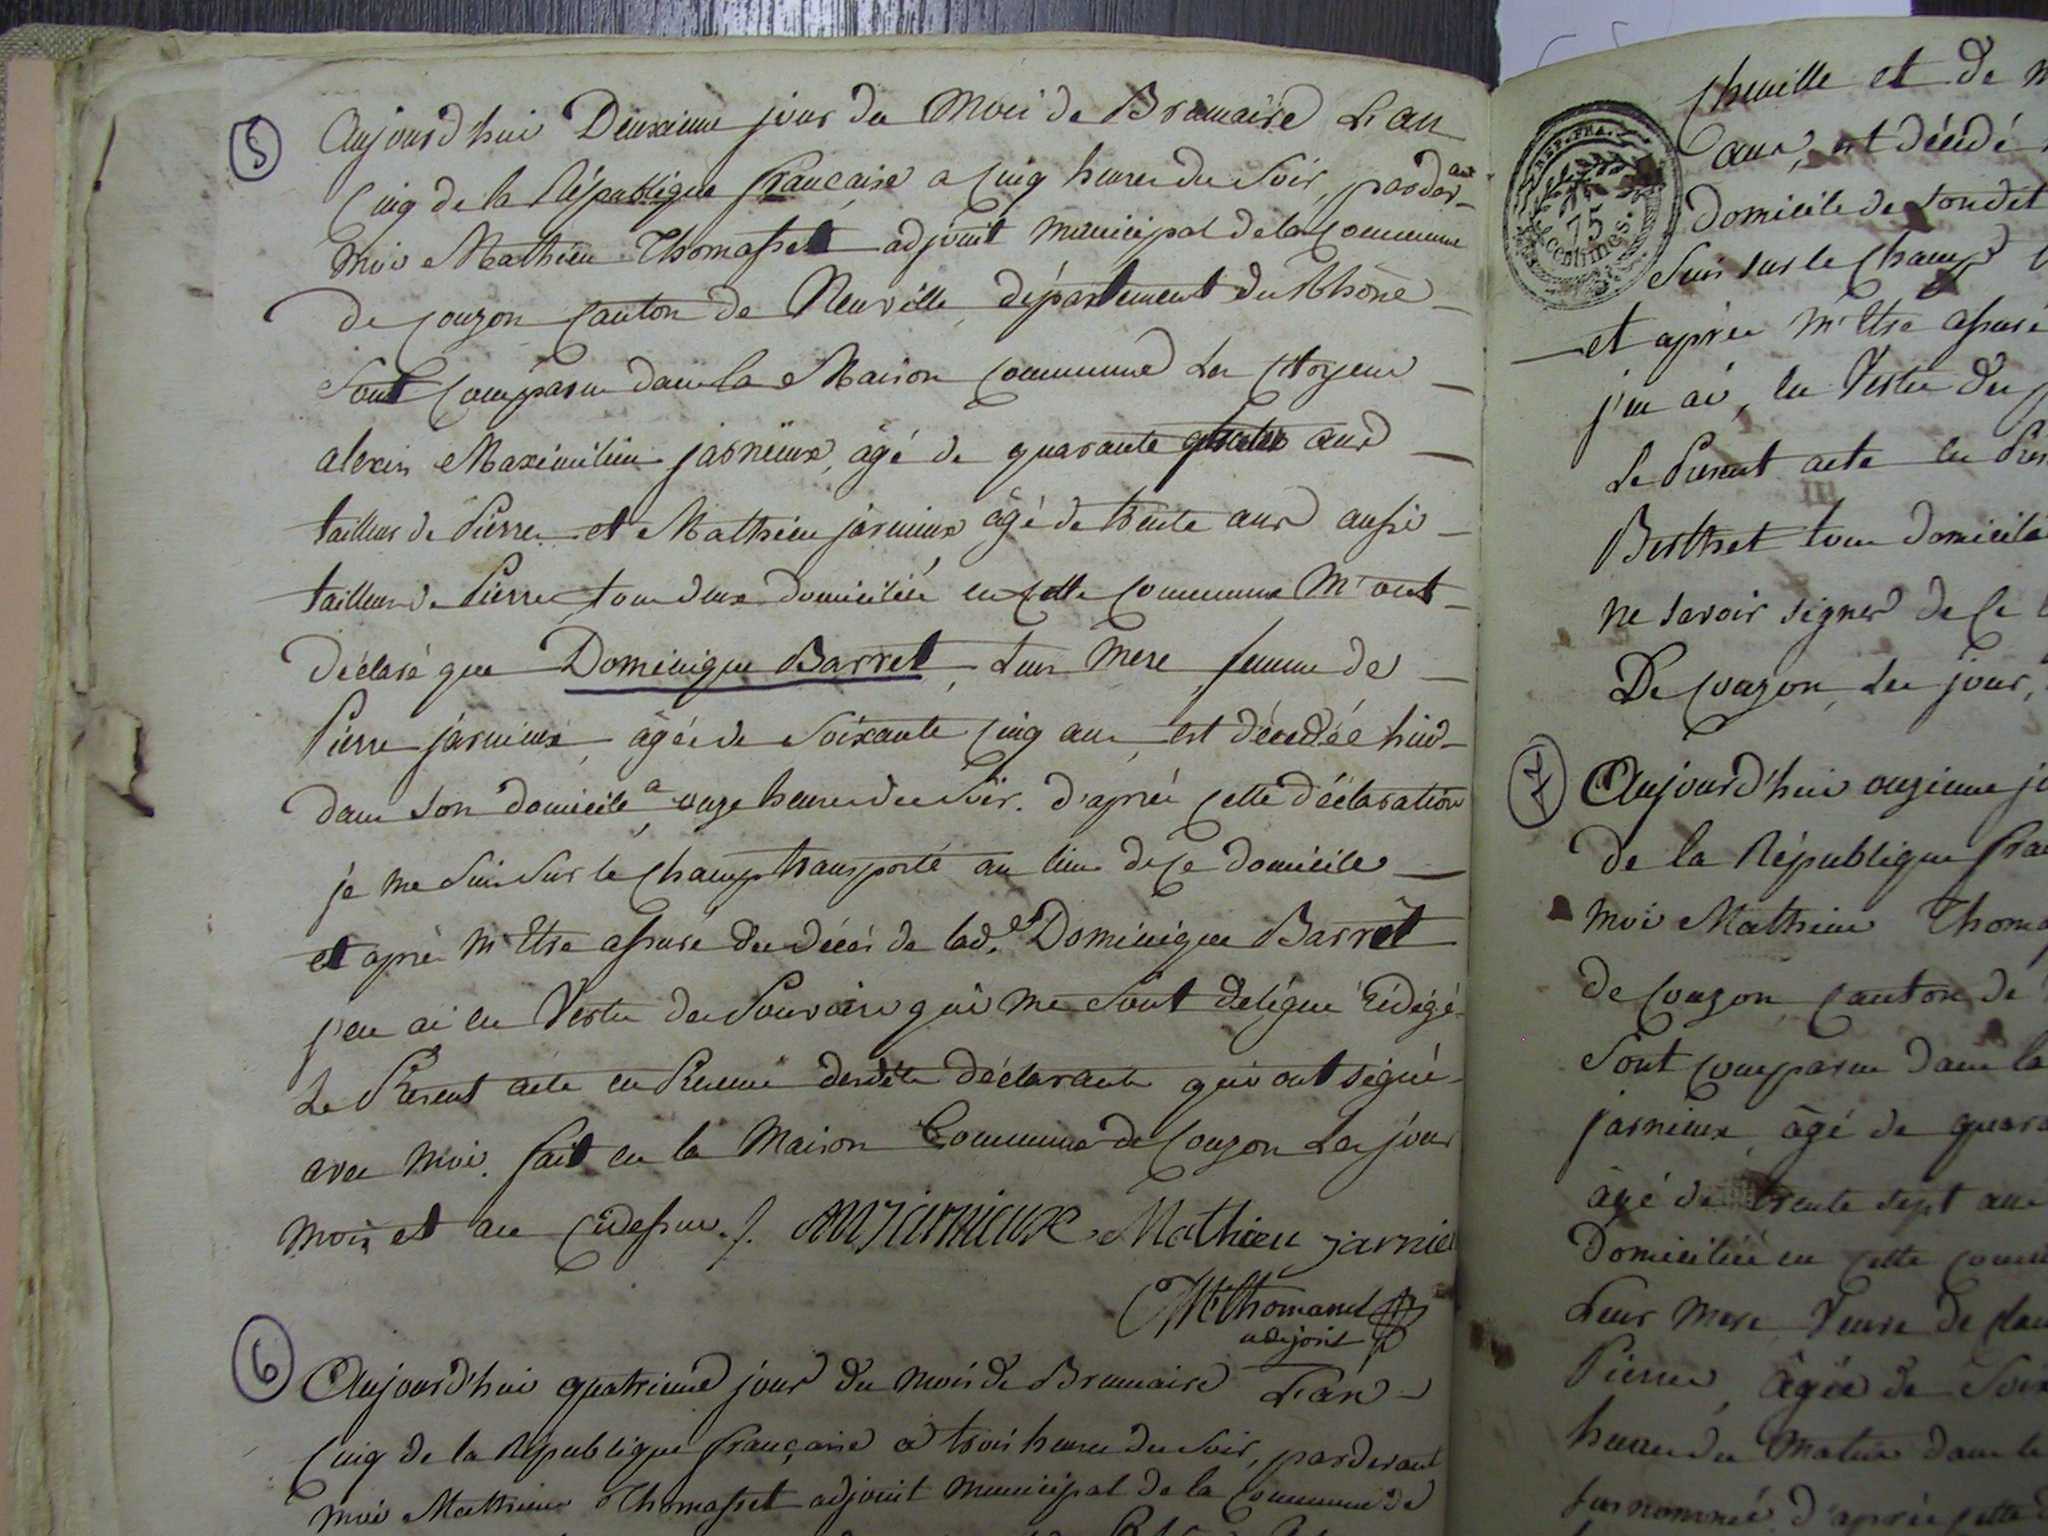 5
Aujourd'hui Deuxieme jour du Mois de Brumaire L'an
Cinq de la République française a Cinq heures du Soir, pardevant
moi Mathieu Thomasset adjoint municipal de la Commune
de Couzon Canton de Neuville département du Rhône
Sont Comparus dans la Maison Commune Les Citoyens
alexis Maximilien jarnieux, âgé de quarante ans
tailleur de Pierre et Mathieu jarnieux âgé de trente ans aussi
tailleur de Pierre tous deux domiciliés en Cette Commune M'ont
déclaré que Dominique Barret Leur Mere femme de
Pierre jarnieux âgée de Soixante Cinq ans est décédée hier
dans son domicile a onze heures du Soir. d'après Cette déclaration
je me Suis Sur le Champ transporté au lieu de Ce domicile
et après M'Etre assuré du décès de lad.e Dominique Barret
j'en ai en Vertu des Pouvoirs qui me Sont délégués Rédigé
Le Present acte en Presence desdits déclarants qui ont signé
avec Moi. fait en la Maison Commune de Couzon Les jour
mois et an Cidessus./. jarnieux Mathieu jarnie
Thomasset
adjoint
6
Aujourd'hui quatrieme jour du mois de Brumaire L'an
Cinq de la République française a trois heures du Soir, pardevant
moi Mathieu Thomasset adjoint Municipal de la Commune de
Cheville et de
ans, est décédé
REP. FRA.
75
centimes.
domicile de Sondit
Suis sur le Champ
et après M'Etre assuré
j'en ai, en Vertu des
Le Present acte en Pres
Berthet tous domiciliés
ne savoir signer de Ce
De Couzon, Les jour,
7
Aujourd'hui onzieme jo
de la République fran
Moi Mathieu Thoma
de Couzon Canton de
Sont Comparus dans la
jarnieux âgé de quara
âgé de trente sept ans
Domiciliés en Cette Comm
Leur Mere Veuve de Clau
Pierre, âgée de Soix
heures du Matin dans le
susnommé d'après cette d